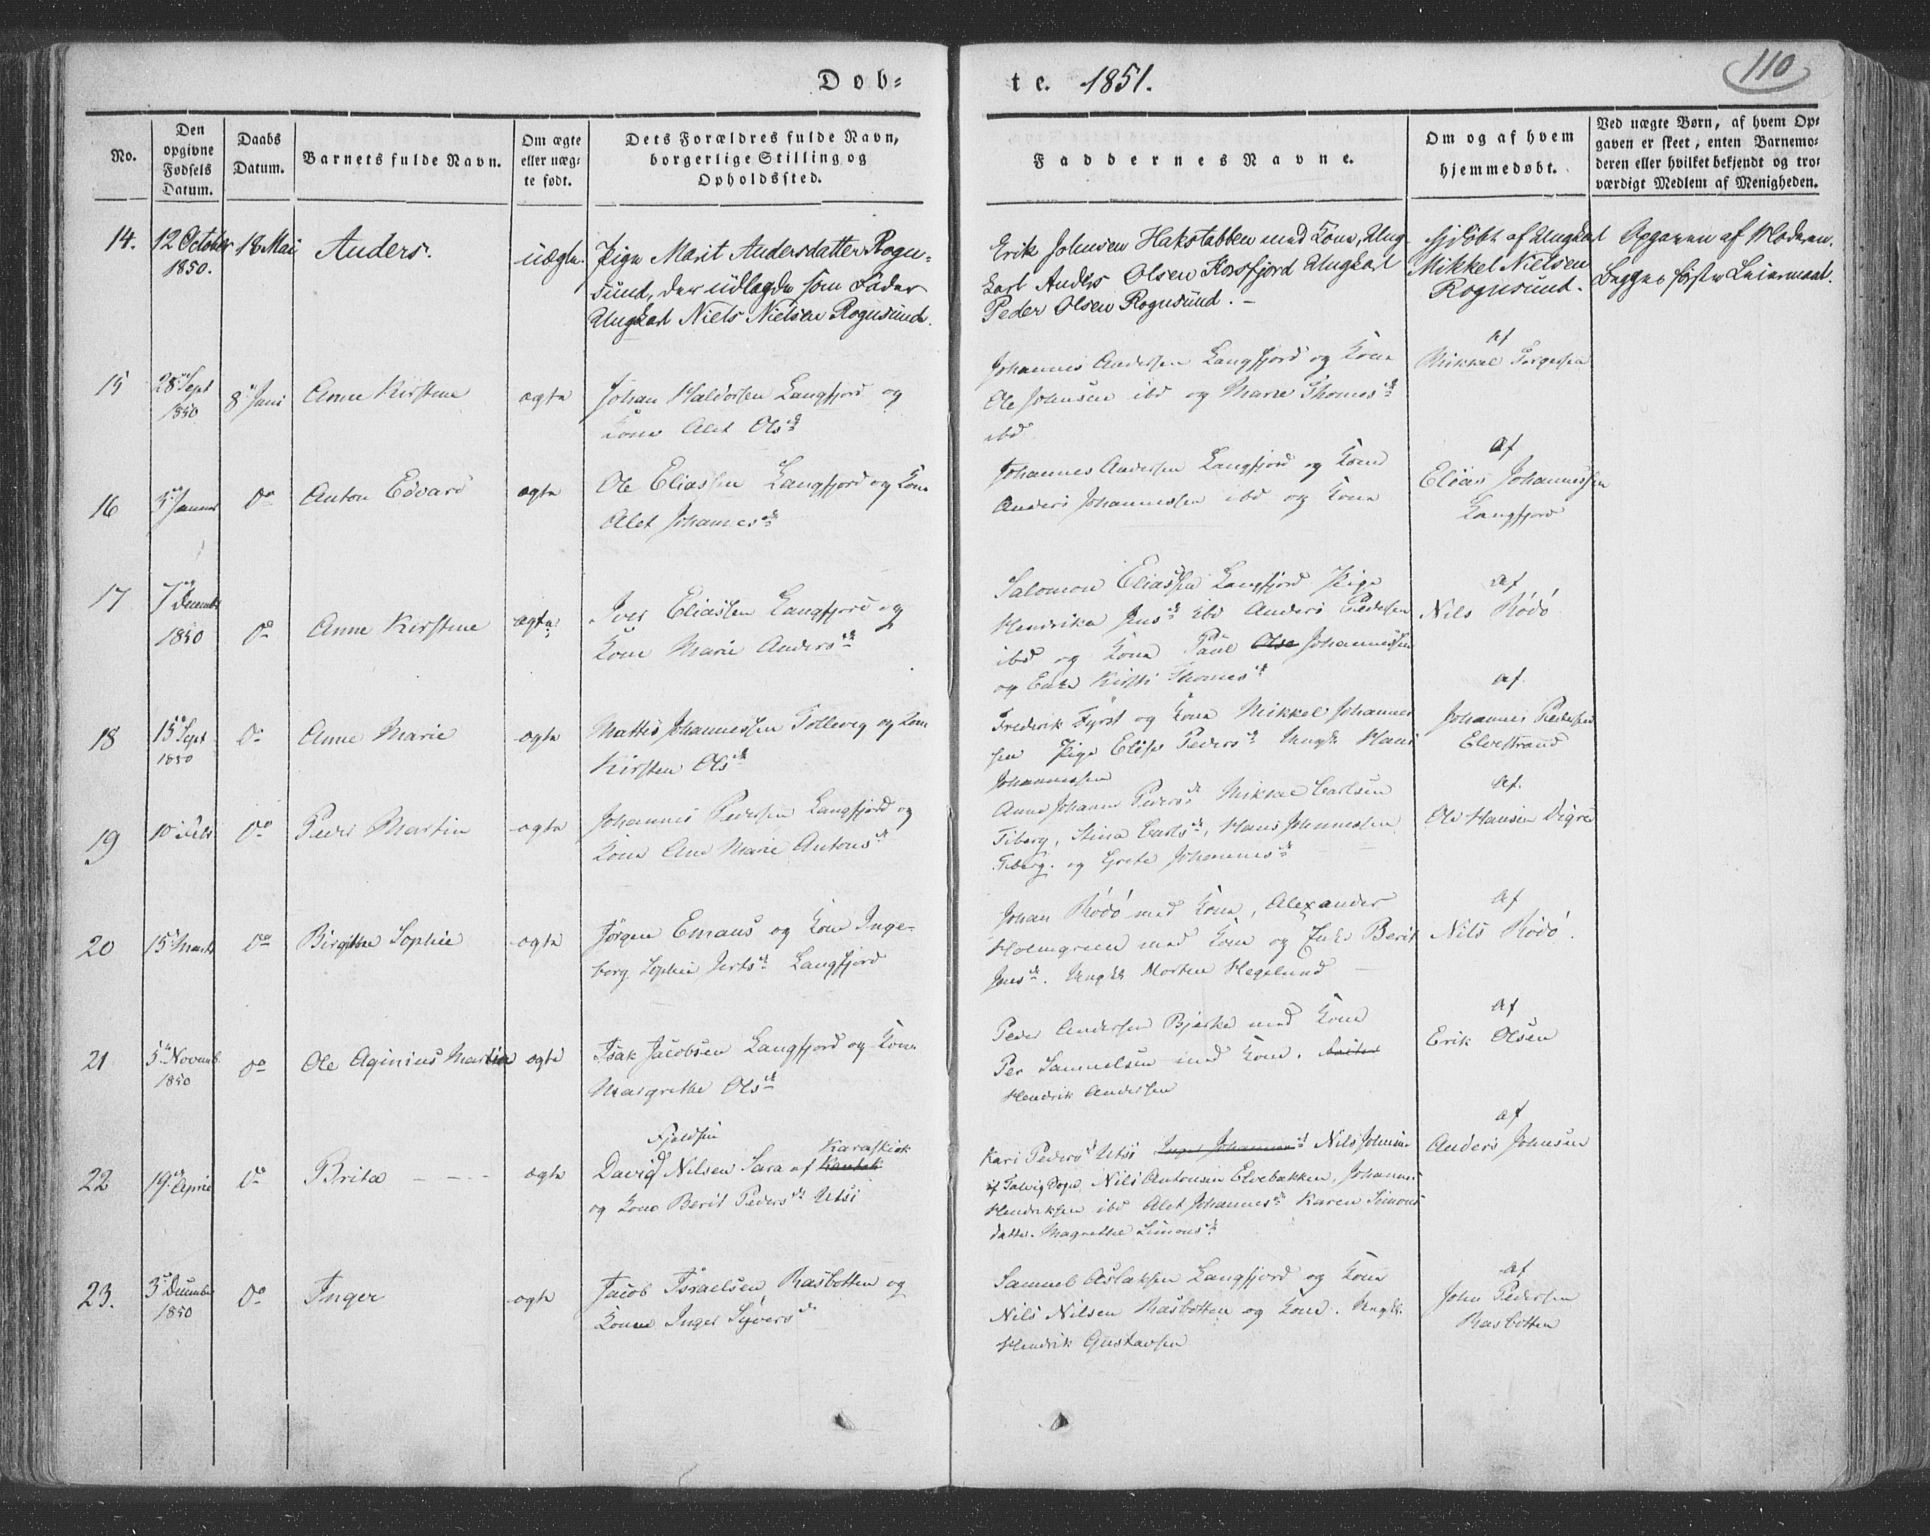 110
Døb-
te. 1851.
No.
Den opgivne Fødsels Datum.
Daabs Datum.
Barnets fulde Navn.
Om ægte eller uæg-te født.
Dets Forældres fulde Navn, borgerlige Stilling og Opholdssted.
Faddernes Navne.
Om og af hvem hjemmedøbt.
Ved uægte Børn, af hvem Op-gaven er skeet, enten Barnemo-deren eller hvilket bekjendt og tro-værdigt Medlem af Menigheden.
14.
12 October
1850.
18 Mai
Anders.
uægte.
Pige Marit Andersdatter Rogn-
sund, der udlagde som Fader
Ungkarl Niels Nielsen Rognsund.
Erik Johnsen Hakstabben med Kone, Ung-
karl Anders Olsen Korsfjord Ungkarl
Peder Olsen Rognsund. –
hjdøbt af Ungkarl
Mikkel Nielsen
Rognsund.
Opgaven af Moderen.
Begges første Leiermaal.
15
28 Sept
1850
8 Juni
Anne Kirstine
ægte
Johan Haldorsen Langfjord og
Kone Alet Olsd
Johannes Andersen Langfjord og Kone
Ole Johnsen ibd og Marie Thomesd
ibd
af
Mikkel
16
5 Januar
do
Anton Edvard
ægte
Ole Eliassen Langfjord og Kone
Alet Johannesd
Johannes Andersen Langfjord og Kone
Anders Johannessen ibd og Kone
af
Elias Johannessen
Langfjord
17
7 Decemb
1850
do
Anne Kirstine
ægte
Iver Eliassen Langfjord og
Kone Marie Andersd
Salomon Eliassen Langfjord Pige
Hendrika Jensd ibd Anders Pedersen
ibd og Kone Paul Olse Johannessen
og Enke Kirsti Thomesd
af
Nils Rødø
18
15 Sept
1850
do
Anne Marie
ægte
Mattis Johannessen Tollevig og Kone
Kirsten Olsd
Frederik Fyrst og Kone Mikkel Johannes
sen Pige Elise Pedersd Ungk Hans
Johannessen
af
Johannes Pedersen
Elvestrand
19
10 Feb
do
Peder Martin
ægte
Johannes Pedersen Langfjord og
Kone Ane Marie Antonsd
Anne Johanne Pedersd Mikkel Carlsen
Tiberg, Stina Carlsd, Hans Johannessen
Tiberg. og Grete Johannesd
af.
Ole Hansen Digre
20
15 Marts
do
Birgithe Sophie
ægte
Jørgen Emaus og Kone Inge-
borg Sophie Langfjord
Johan Rødø med Kone, Alexander
Holmgreen med Kone og Enke Berit
Jensd. Ungk Morten Hegelund
af
Nils Rødø.
21
5 Novemb
1850
do
Ole Aginius Martin
ægte
Isak Jacobsen Langfjord og Kone
Margrethe Olsd
Peder Andersen Bjerke med Kone
Per Samuelsen med Kone.
Hendrik Andersen
af
Erik Olsen
22
19 April
do
Brita
ægte
Fjeldfin Karasiok
David Nilsen Sara af
og Kone Berit Pedersd Utsi
Kari Pedersd Utsi Inger Johannesd Nils Johnsen
af Talvig Sogn Nils Antonsen Elvebakken, Johannes
Hendriksen ibd Alet Johannesd Karen Simons
datter. Magrethe Simonsd
af
Anders Johnsen
23.
3 Decembr
1850
do
Inger
ægte
Jacob Israelsen Rasbotten og
Kone Inger Syversd
Samuel Aslaksen Langfjord og Kone
Nils Nilsen Rasbotten og Kone. Ungk
Hendrik Gustavsen
af
John Pedersen
Rasbotten